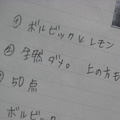 ① ボルビック レモン
② 全然ダメ。 上の方も
③ 50点
ボルビック